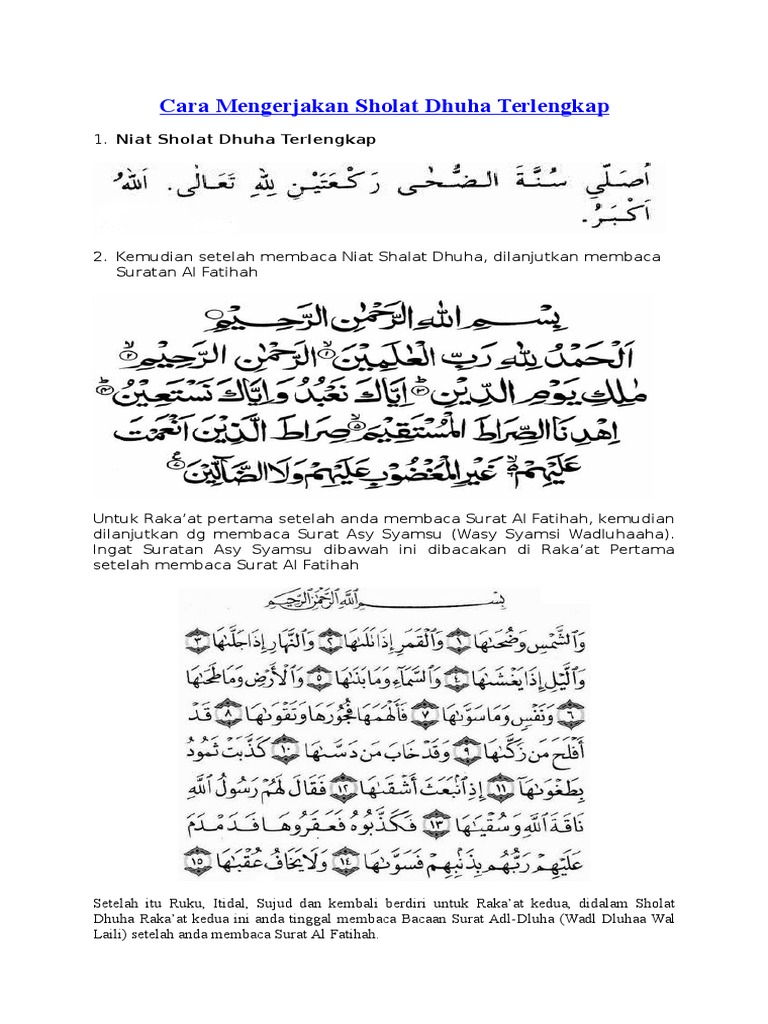 Cara Mengerjakan Sholat Dhuha Terlengkap
1. Niat Sholat Dhuha Terlengkap
اُصَلِّي سُنَّةَ الضُّحٰى رَكْعَتَيْنِ لِلّٰهِ تَعَالٰى. اَللهُ
اَكْبَرُ.
2. Kemudian setelah membaca Niat Shalat Dhuha, dilanjutkan membaca
Suratan Al Fatihah
بِسْمِ اللهِ الرَّحْمٰنِ الرَّحِيْمِ
اَلْحَمْدُ لِلّٰهِ رَبِّ الْعٰلَمِيْنَ ۱ الرَّحْمٰنِ الرَّحِيْمِ ۲
مٰلِكِ يَوْمِ الدِّيْنِ ۳ اِيَّاكَ نَعْبُدُ وَاِيَّاكَ نَسْتَعِيْنُ ۴
اِهْدِنَا الصِّرَاطَ الْمُسْتَقِيْمَ ۵ صِرَاطَ الَّذِيْنَ اَنْعَمْتَ
عَلَيْهِمْ ۶ غَيْرِ الْمَغْضُوْبِ عَلَيْهِمْ وَلَا الضَّالِّيْنَ ۷
Untuk Raka’at pertama setelah anda membaca Surat Al Fatihah, kemudian
dilanjutkan dg membaca Surat Asy Syamsu (Wasy Syamsi Wadluhaaha).
Ingat Suratan Asy Syamsu dibawah ini dibacakan di Raka’at Pertama
setelah membaca Surat Al Fatihah
بِسْمِ ٱللَّهِ ٱلرَّحْمَٰنِ ٱلرَّحِيمِ
وَٱلشَّمْسِ وَضُحَىٰهَا ١ وَٱلْقَمَرِ إِذَا تَلَىٰهَا ٢ وَٱلنَّهَارِ إِذَا جَلَّىٰهَا ٣
وَٱلَّيْلِ إِذَا يَغْشَىٰهَا ٤ وَٱلسَّمَآءِ وَمَا بَنَىٰهَا ٥ وَٱلْأَرْضِ وَمَا طَحَىٰهَا
٦ وَنَفْسٍ وَمَا سَوَّىٰهَا ٧ فَأَلْهَمَهَا فُجُورَهَا وَتَقْوَىٰهَا ٨ قَدْ
أَفْلَحَ مَن زَكَّىٰهَا ٩ وَقَدْ خَابَ مَن دَسَّىٰهَا ١٠ كَذَّبَتْ ثَمُودُ
بِطَغْوَىٰهَآ ١١ إِذِ ٱنۢبَعَثَ أَشْقَىٰهَا ١٢ فَقَالَ لَهُمْ رَسُولُ ٱللَّهِ
نَاقَةَ ٱللَّهِ وَسُقْيَٰهَا ١٣ فَكَذَّبُوهُ فَعَقَرُوهَا فَدَمْدَمَ
عَلَيْهِمْ رَبُّهُم بِذَنۢبِهِمْ فَسَوَّىٰهَا ١٤ وَلَا يَخَافُ عُقْبَٰهَا ١٥
Setelah itu Ruku, Itidal, Sujud dan kembali berdiri untuk Raka’at kedua, didalam Sholat
Dhuha Raka’at kedua ini anda tinggal membaca Bacaan Surat Adl-Dluha (Wadl Dluhaa Wal
Laili) setelah anda membaca Surat Al Fatihah.